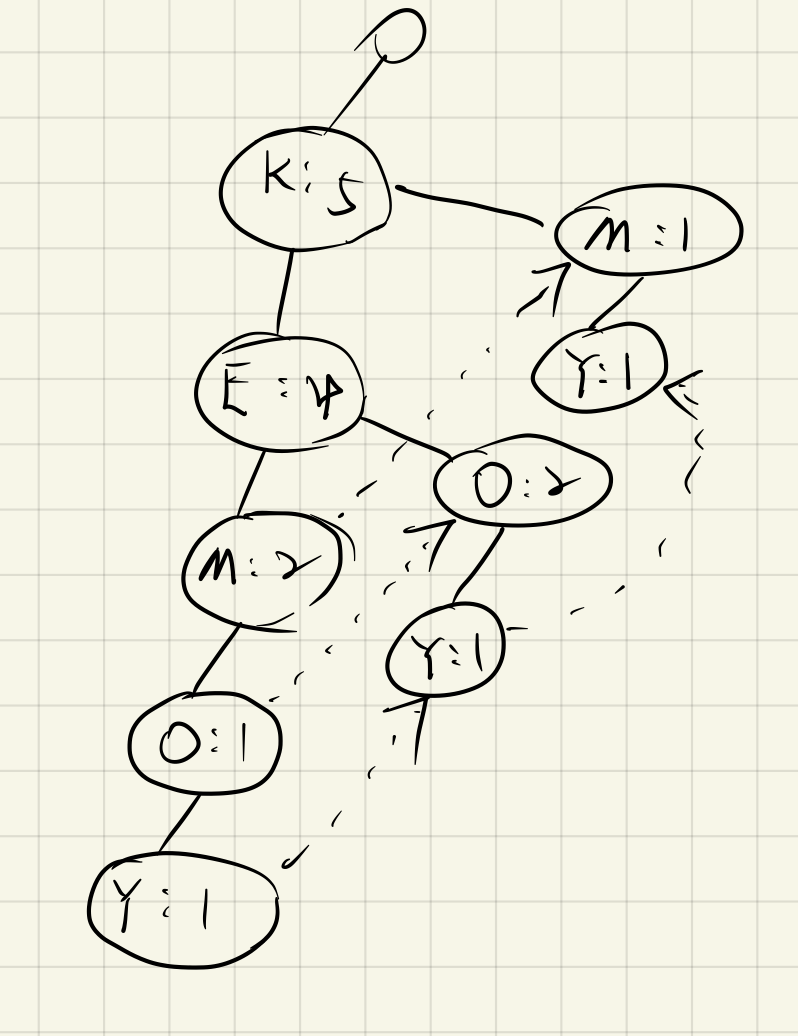 K:5
M:1
Y:1
E:4
O:2
M:2
Y:1
O:1
Y:1